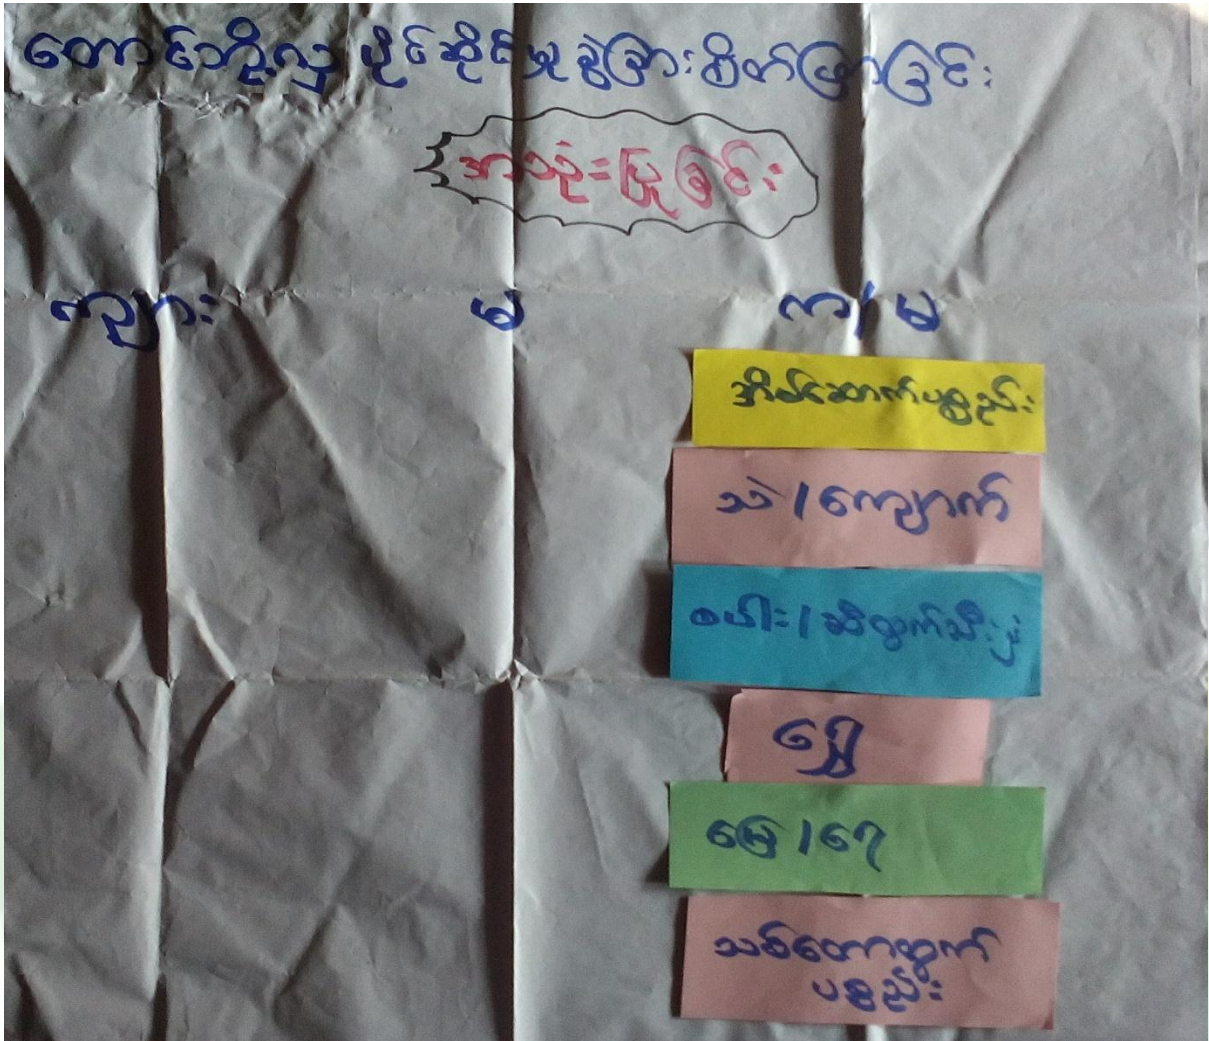 တောင်ဘို့လှ ပိုင်ဆိုင်မှု ခွဲခြားစိတ်ဖြာခြင်း
အသုံးပြုခြင်း
ကျား မ ကျ/မ
အိမ်ဆောက်ပစ္စည်း
သဲ/ကျောက်
စပါး/ဆီထွက်သီးနှံ
ရွှေ
မြေ/ရေ
သစ်တောထွက်
ပစ္စည်း